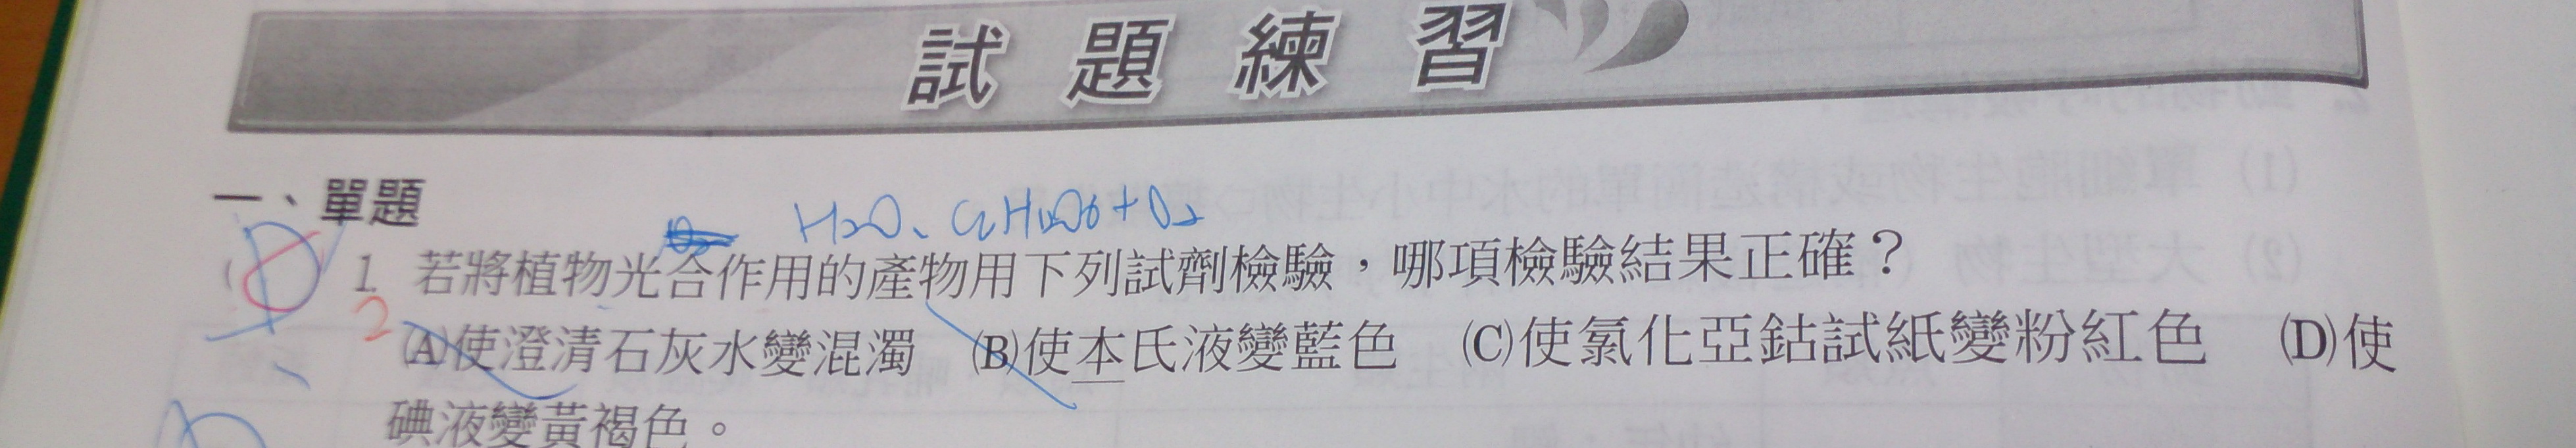 試題練習
一、單題
H2O、C6H12O6+O2
D C 1. 若將植物光合作用的產物用下列試劑檢驗，哪項檢驗結果正確？
2 (A)使澄清石灰水變混濁 (B)使本氏液變藍色 (C)使氯化亞鈷試紙變粉紅色 (D)使
碘液變黃褐色。